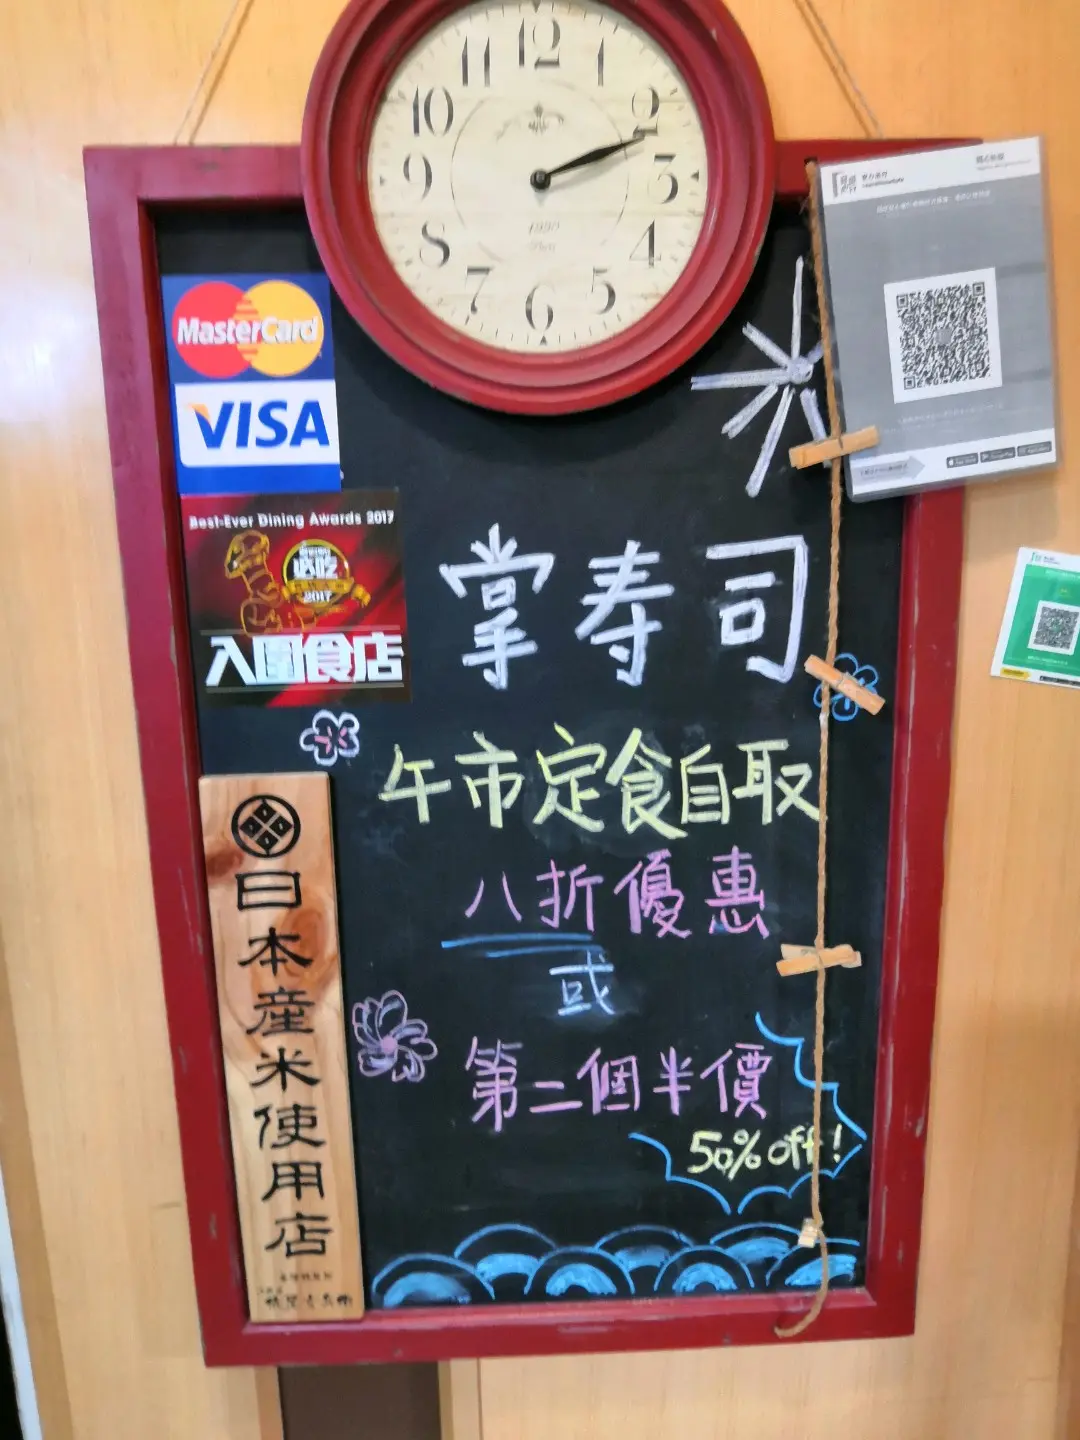 12
1
2
3
4
5
6
7
8
9
10
11
MasterCard
VISA
Best-Ever Dining Awards 2017
必吃
2017
入圍食店
掌寿司
午市定食自取
八折優惠
或
第二個半價
50% off!
日本産米使用店